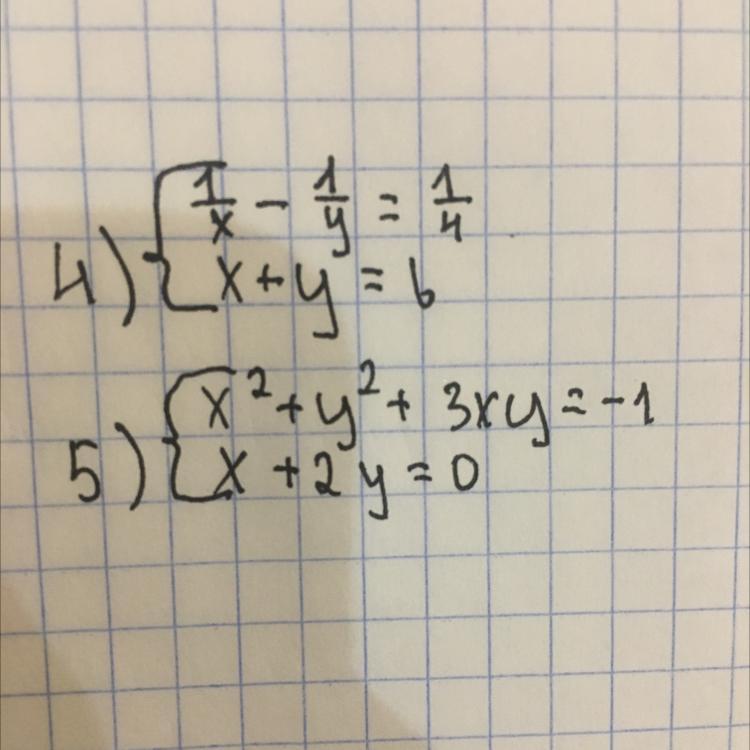 4) { 1/x - 1/y = 1/4
x + y = 6
5) { x² + y² + 3xy = -1
x + 2y = 0